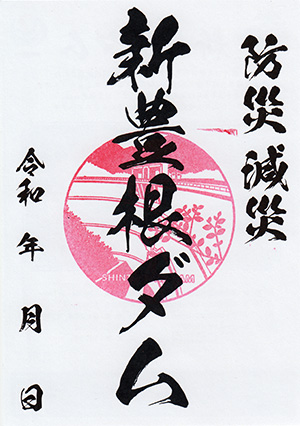 防災減災
新豊根ダム
令和 年 月 日